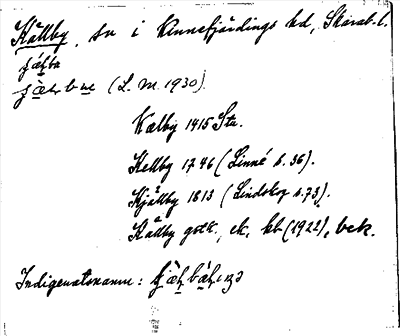 Källby, sn i Kinnefjärdings hd, Skarab. l.
(L. M. 1930).
Kælby 1415 Stu.
Kellby 1746 (Linné s. 36).
Kjällby 1813 (Lindskog s. 73).
Källby godk., ek. kb (1922), bek.
Indigenatsnamn: